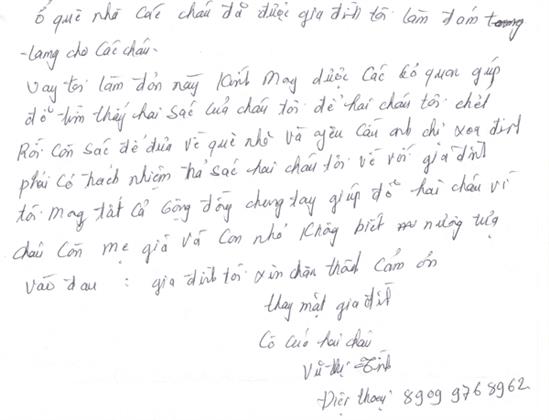 ở quê nhà các cháu đã được gia đình tôi làm đám
-lang cho các cháu-
vay tôi làm đơn này kính mong được các cơ quan giúp
đỡ tìm thấy hai sác của cháu tôi để hai cháu tôi chết
Rồi còn sác để đưa về quê nhà và yêu cầu anh chị
phải có trách nhiệm trả sác hai cháu tôi về với gia đình
tôi mong tất cả cộng đồng chung tay giúp đỡ hai cháu vì
cháu còn mẹ già và con nhỏ không biết nương tựa
vào đau : gia đình tôi xin chân thành cảm ơn
thay mặt gia đình
Cô của hai cháu
Vũ Thị Tính
Điện thoại 8909 976 8962